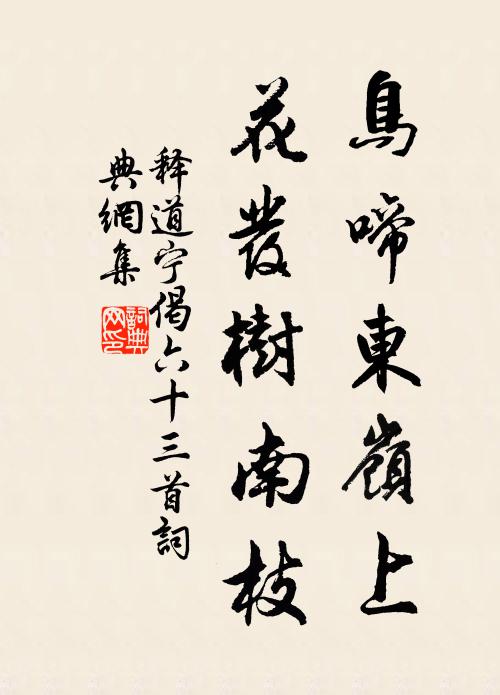 鳥啼東嶺上
花發樹南枝
释道宁偈六十三首詞
典網集
詞典
网印